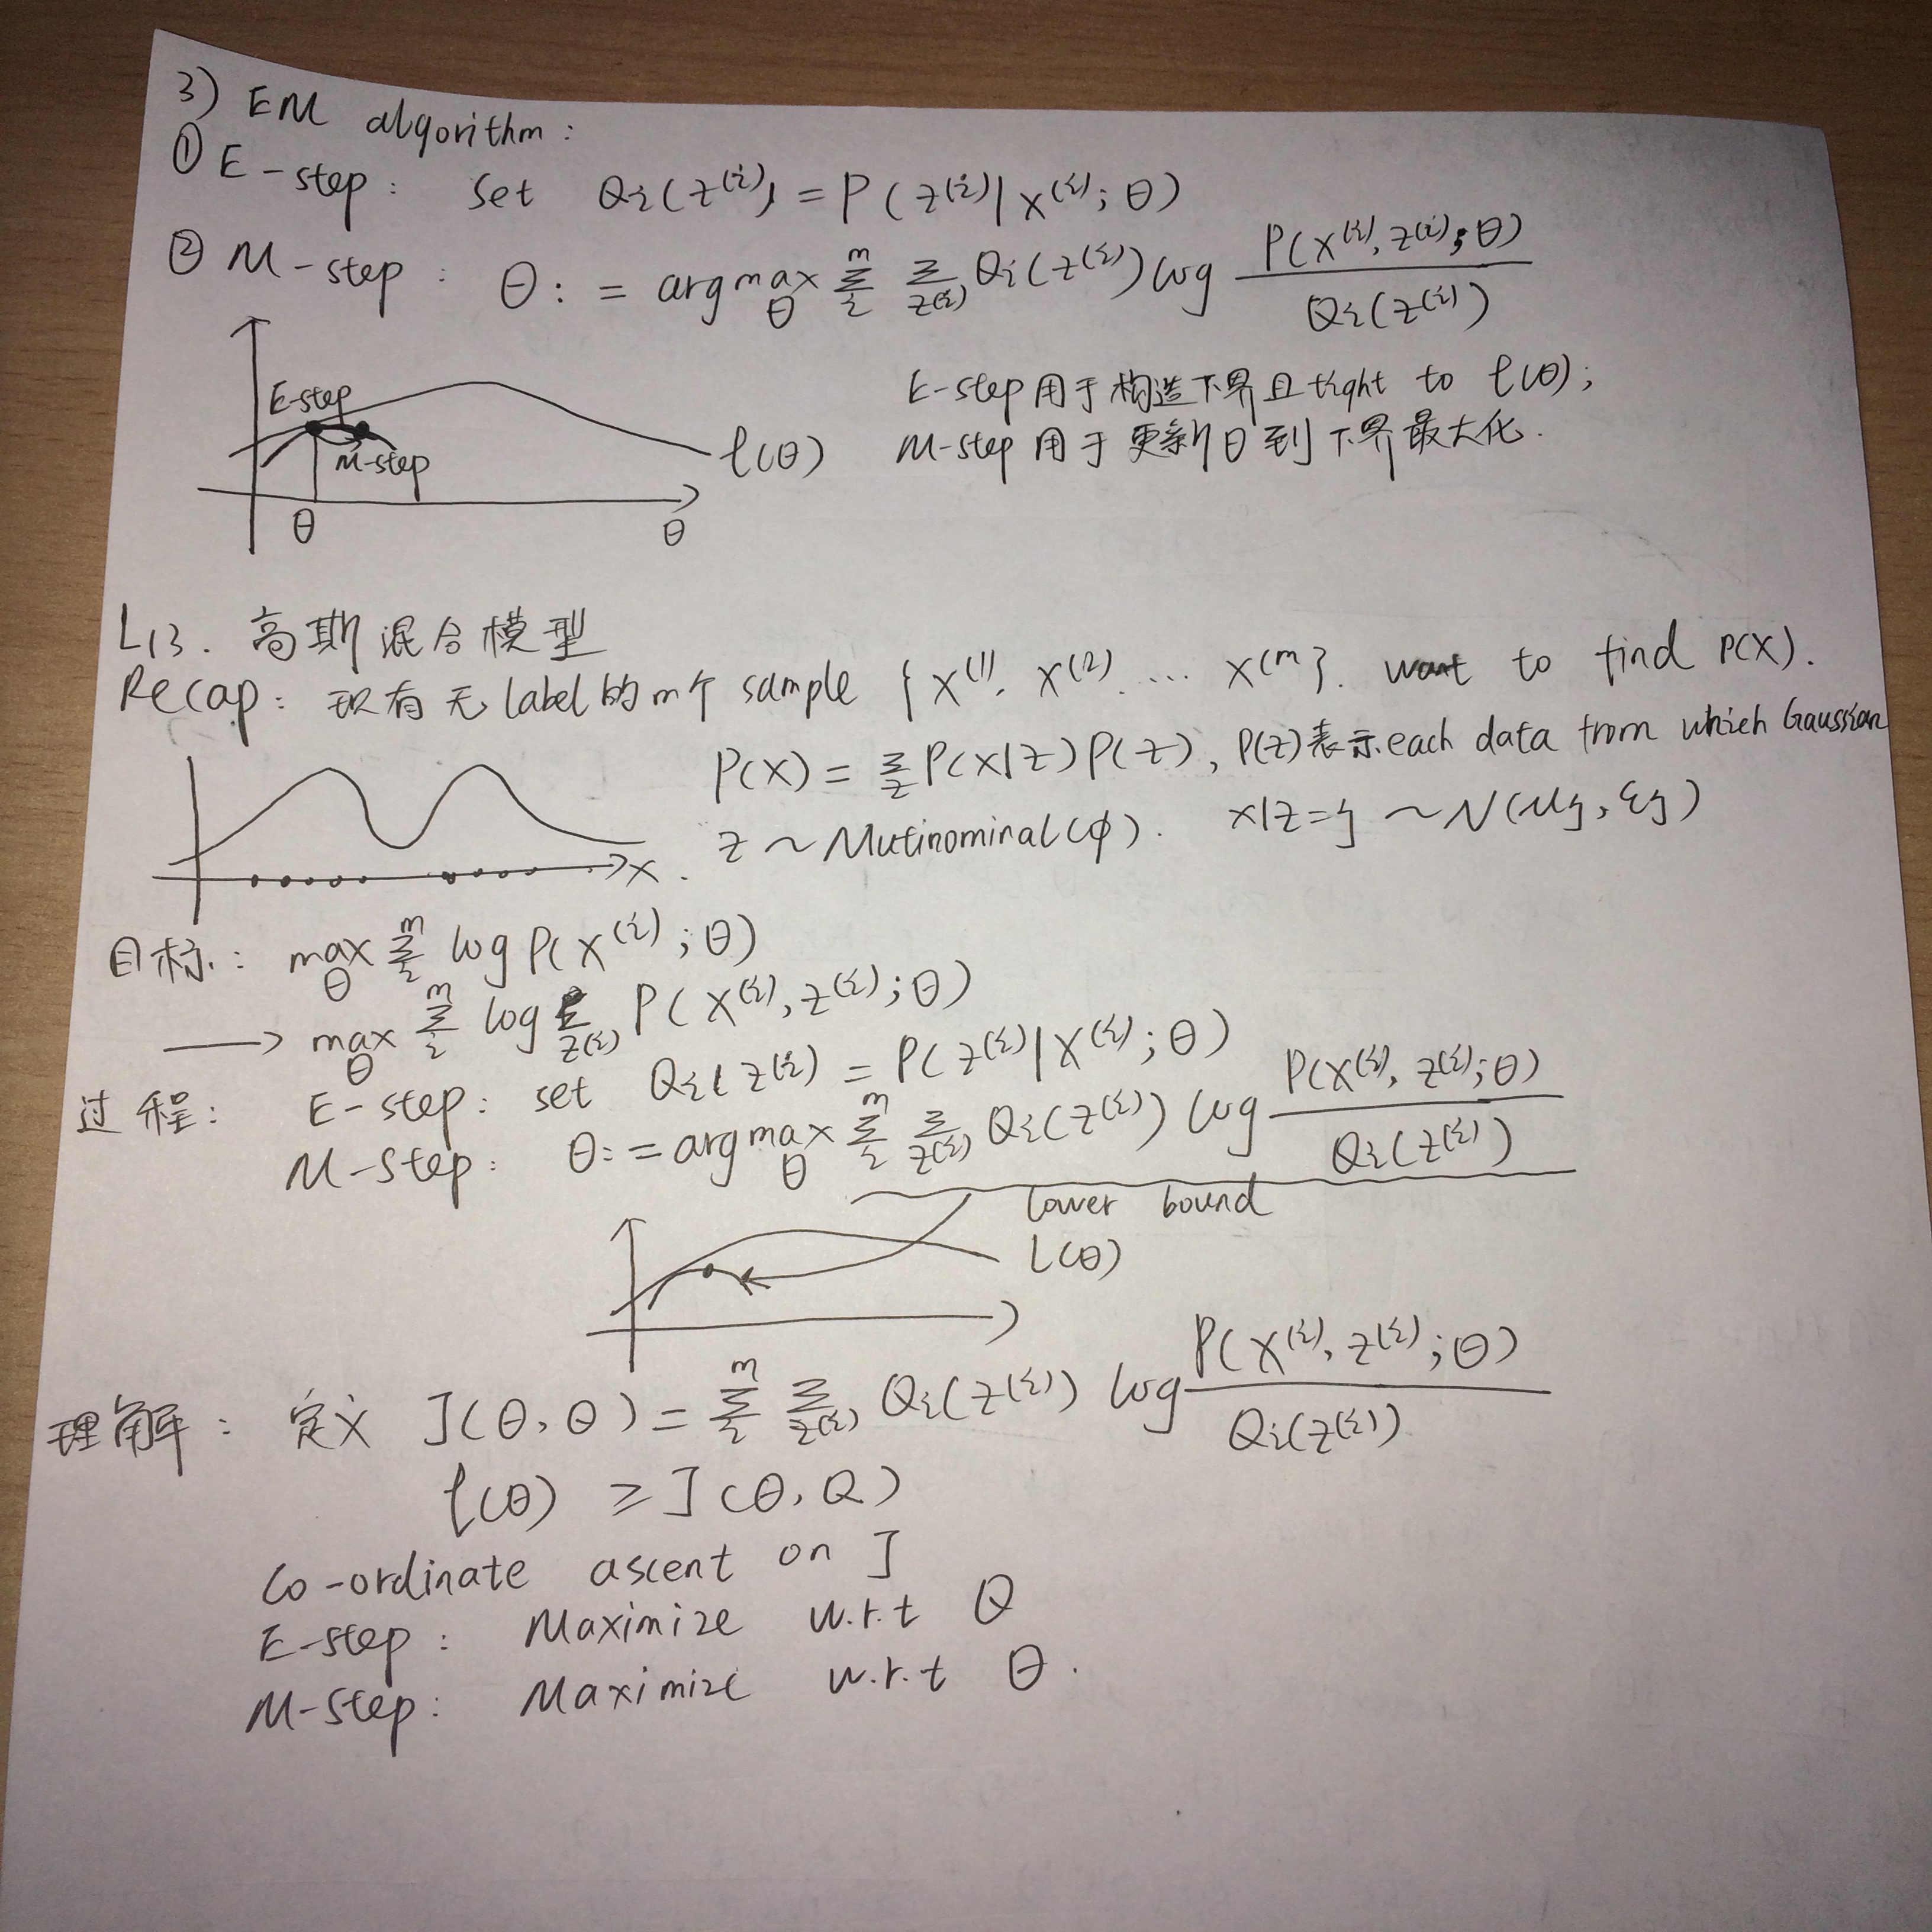 3) EM algorithm:
① E-step: set Qi(z⁽ⁱ⁾) = P(z⁽ⁱ⁾|x⁽ⁱ⁾;θ)
② M-step: θ: = argmax_θ Σ_i^m Σ_z⁽ⁱ⁾ Qi(z⁽ⁱ⁾) log P(x⁽ⁱ⁾,z⁽ⁱ⁾;θ) / Qi(z⁽ⁱ⁾)
E-step
M-step
ℓ(θ)
θ
θ
E-step用于构造下界且tight to ℓ(θ);
M-step用于更新θ到下界最大化.
L13. 高斯混合模型
Recap: 现有无label的m个 sample {x⁽¹⁾, x⁽²⁾, ... x⁽ᵐ}. want to find P(x).
P(x) = Σ_z P(x|z)P(z), P(z)表示each data from which Gaussian
z ~ Mutinominal(φ). x|z=j ~ N(μj, Σj)
x.
目标: max_θ Σ_i^m log P(x⁽ⁱ⁾;θ)
→ max_θ Σ_i^m log Σ_z⁽ⁱ⁾ P(x⁽ⁱ⁾,z⁽ⁱ⁾;θ)
过程: E-step: set Qi(z⁽ⁱ⁾) = P(z⁽ⁱ⁾|x⁽ⁱ⁾;θ)
M-step: θ: = argmax_θ Σ_i^m Σ_z⁽ⁱ⁾ Qi(z⁽ⁱ⁾) log P(x⁽ⁱ⁾,z⁽ⁱ⁾;θ) / Qi(z⁽ⁱ⁾)
lower bound
L(θ)
理解: 定义 J(θ,θ) = Σ_i^m Σ_z⁽ⁱ⁾ Qi(z⁽ⁱ⁾) log P(x⁽ⁱ⁾,z⁽ⁱ⁾;θ) / Qi(z⁽ⁱ⁾)
ℓ(θ) ≥ J(θ,Q)
Co-ordinate ascent on J
E-step: Maximize w.r.t Q
M-step: Maximize w.r.t θ.